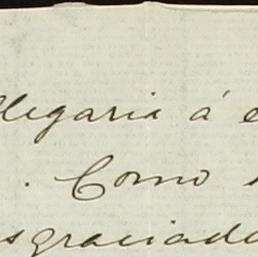 llegaria á e
. Como
sgraciada